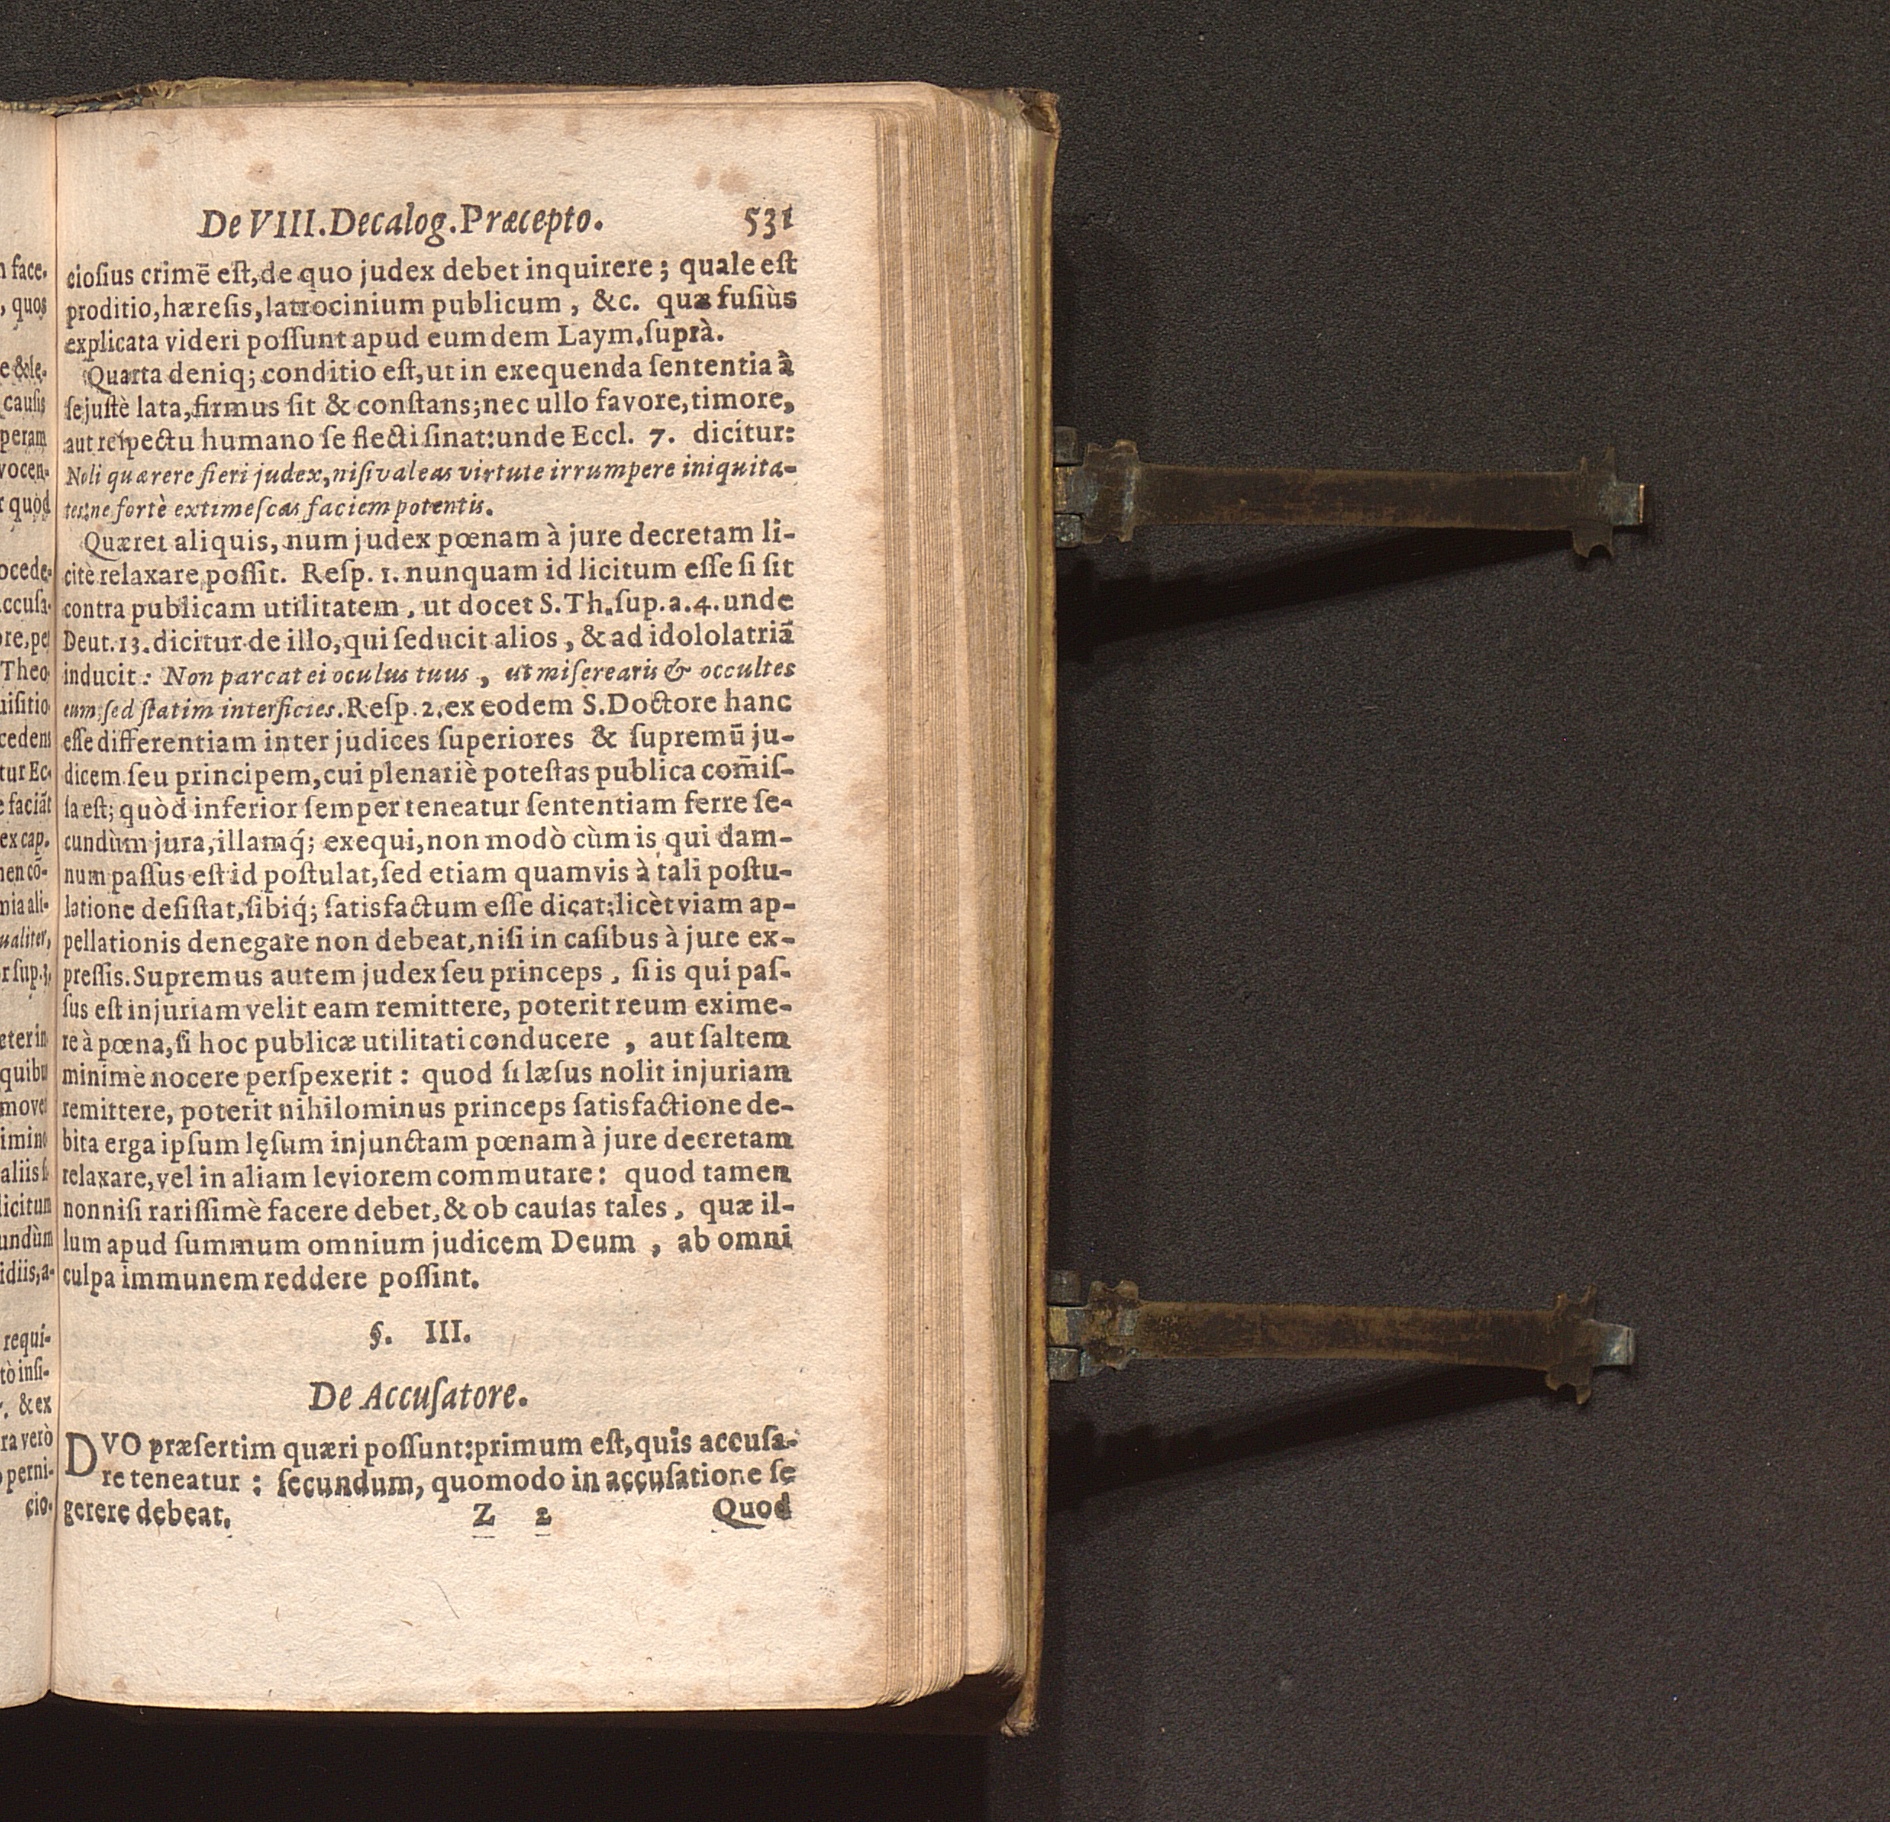 De VIII. Decalog. Præcepto. 531
cioſius crimē eſt, de quo judex debet inquirere; quale eſt
proditio, hæreſis, latrocinium publicum, &c. quæ fuſiùs
explicata videri poſſunt apud eumdem Laym. ſuprà.
Quarta deniq; conditio eſt, ut in exequenda ſententia à
ſe juſtè lata, firmus ſit & conſtans; nec ullo favore, timore,
aut reſpectu humano ſe flecti ſinat: unde Eccl. 7. dicitur:
Noli quærere fieri judex, niſi valeas virtute irrumpere iniquita-
tes: ne fortè extimeſcas faciem potentis.
Quæret aliquis, num judex pœnam à jure decretam li-
citè relaxare poſſit. Reſp. 1. nunquam id licitum eſſe ſi ſit
contra publicam utilitatem, ut docet S. Th. ſup. a. 4. unde
Deut. 13. dicitur de illo, qui ſeducit alios, & ad idololatriā
inducit: Non parcat ei oculus tuus, ut miſerearis & occultes
eum: ſed ſtatim interficies. Reſp. 2. ex eodem S. Doctore hanc
eſſe differentiam inter judices ſuperiores & ſupremū ju-
dicem ſeu principem, cui plenariè poteſtas publica com̄iſ-
ſa eſt; quòd inferior ſemper teneatur ſententiam ferre ſe-
cundùm jura, illamq́; exequi, non modò cùm is qui dam-
num paſſus eſt id poſtulat, ſed etiam quamvis à tali poſtu-
latione deſiſtat, ſibiq́; ſatisfactum eſſe dicat; licèt viam ap-
pellationis denegare non debeat, niſi in caſibus à jure ex-
preſſis. Supremus autem judex ſeu princeps, ſi is qui paſ-
ſus eſt injuriam velit eam remittere, poterit reum exime-
re à pœna, ſi hoc publicæ utilitati conducere, aut ſaltem
minimè nocere perſpexerit: quod ſi læſus nolit injuriam
remittere, poterit nihilominus princeps ſatisfactione de-
bita erga ipſum lęſum injunctam pœnam à jure decretam
relaxare, vel in aliam leviorem commutare: quod tamen
nonniſi rariſſimè facere debet, & ob cauſas tales, quæ il-
lum apud ſummum omnium judicem Deum, ab omni
culpa immunem reddere poſſint.
§. III.
De Accuſatore.
DVO præſertim quæri poſſunt: primum eſt, quis accuſa-
re teneatur: ſecundum, quomodo in accuſatione ſe
gerere debeat. Z 2 Quod